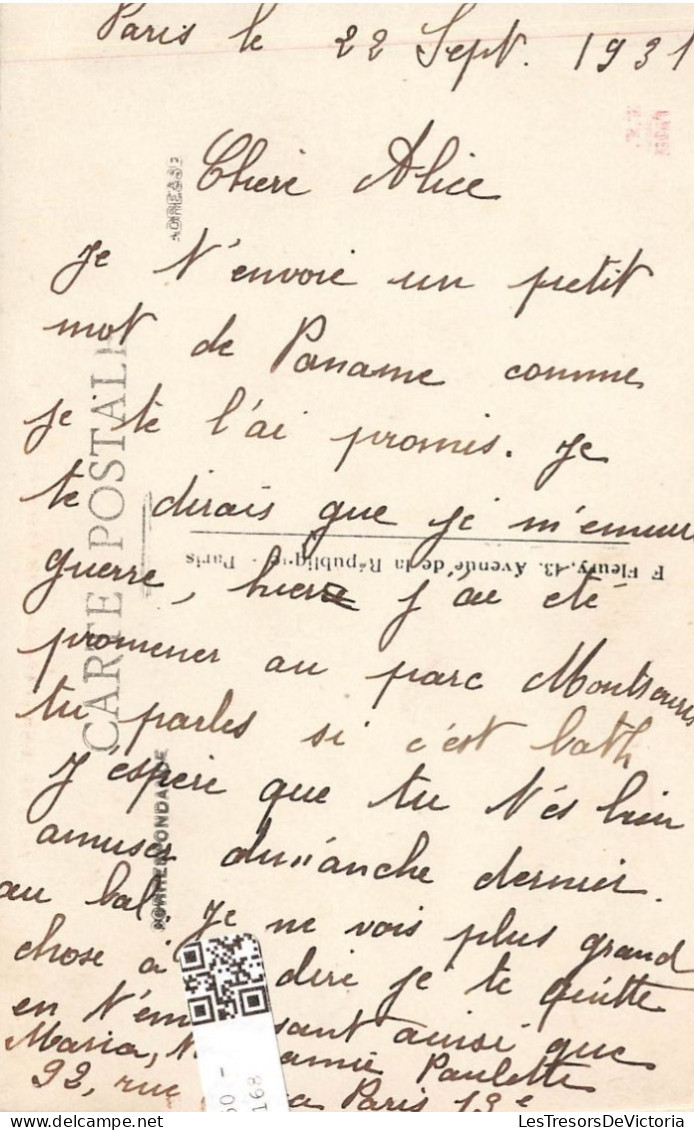 Paris le 22 Sept. 1931
Chère Alice
Je t'envoie un petit
mot de Paname comme
je te l'ai promis. Je
te dirais que je m'emuie
guerre, hier j'ai été
promener au parc Montsouris
tu parles si c'est bath
J'espère que tu t'es bien
amuser dimanche dernier
au bal. Je ne vois plus grand
chose à dire je te quitte
en t'em sant ainsi que
Maria, amie Paulette
92, rue Paris 13e
CARTE POSTALE
CORRESPONDANCE
ADRESSE
F. Fleury, 43, Avenue de la République - Paris
168
LesTresorsDeVictoria